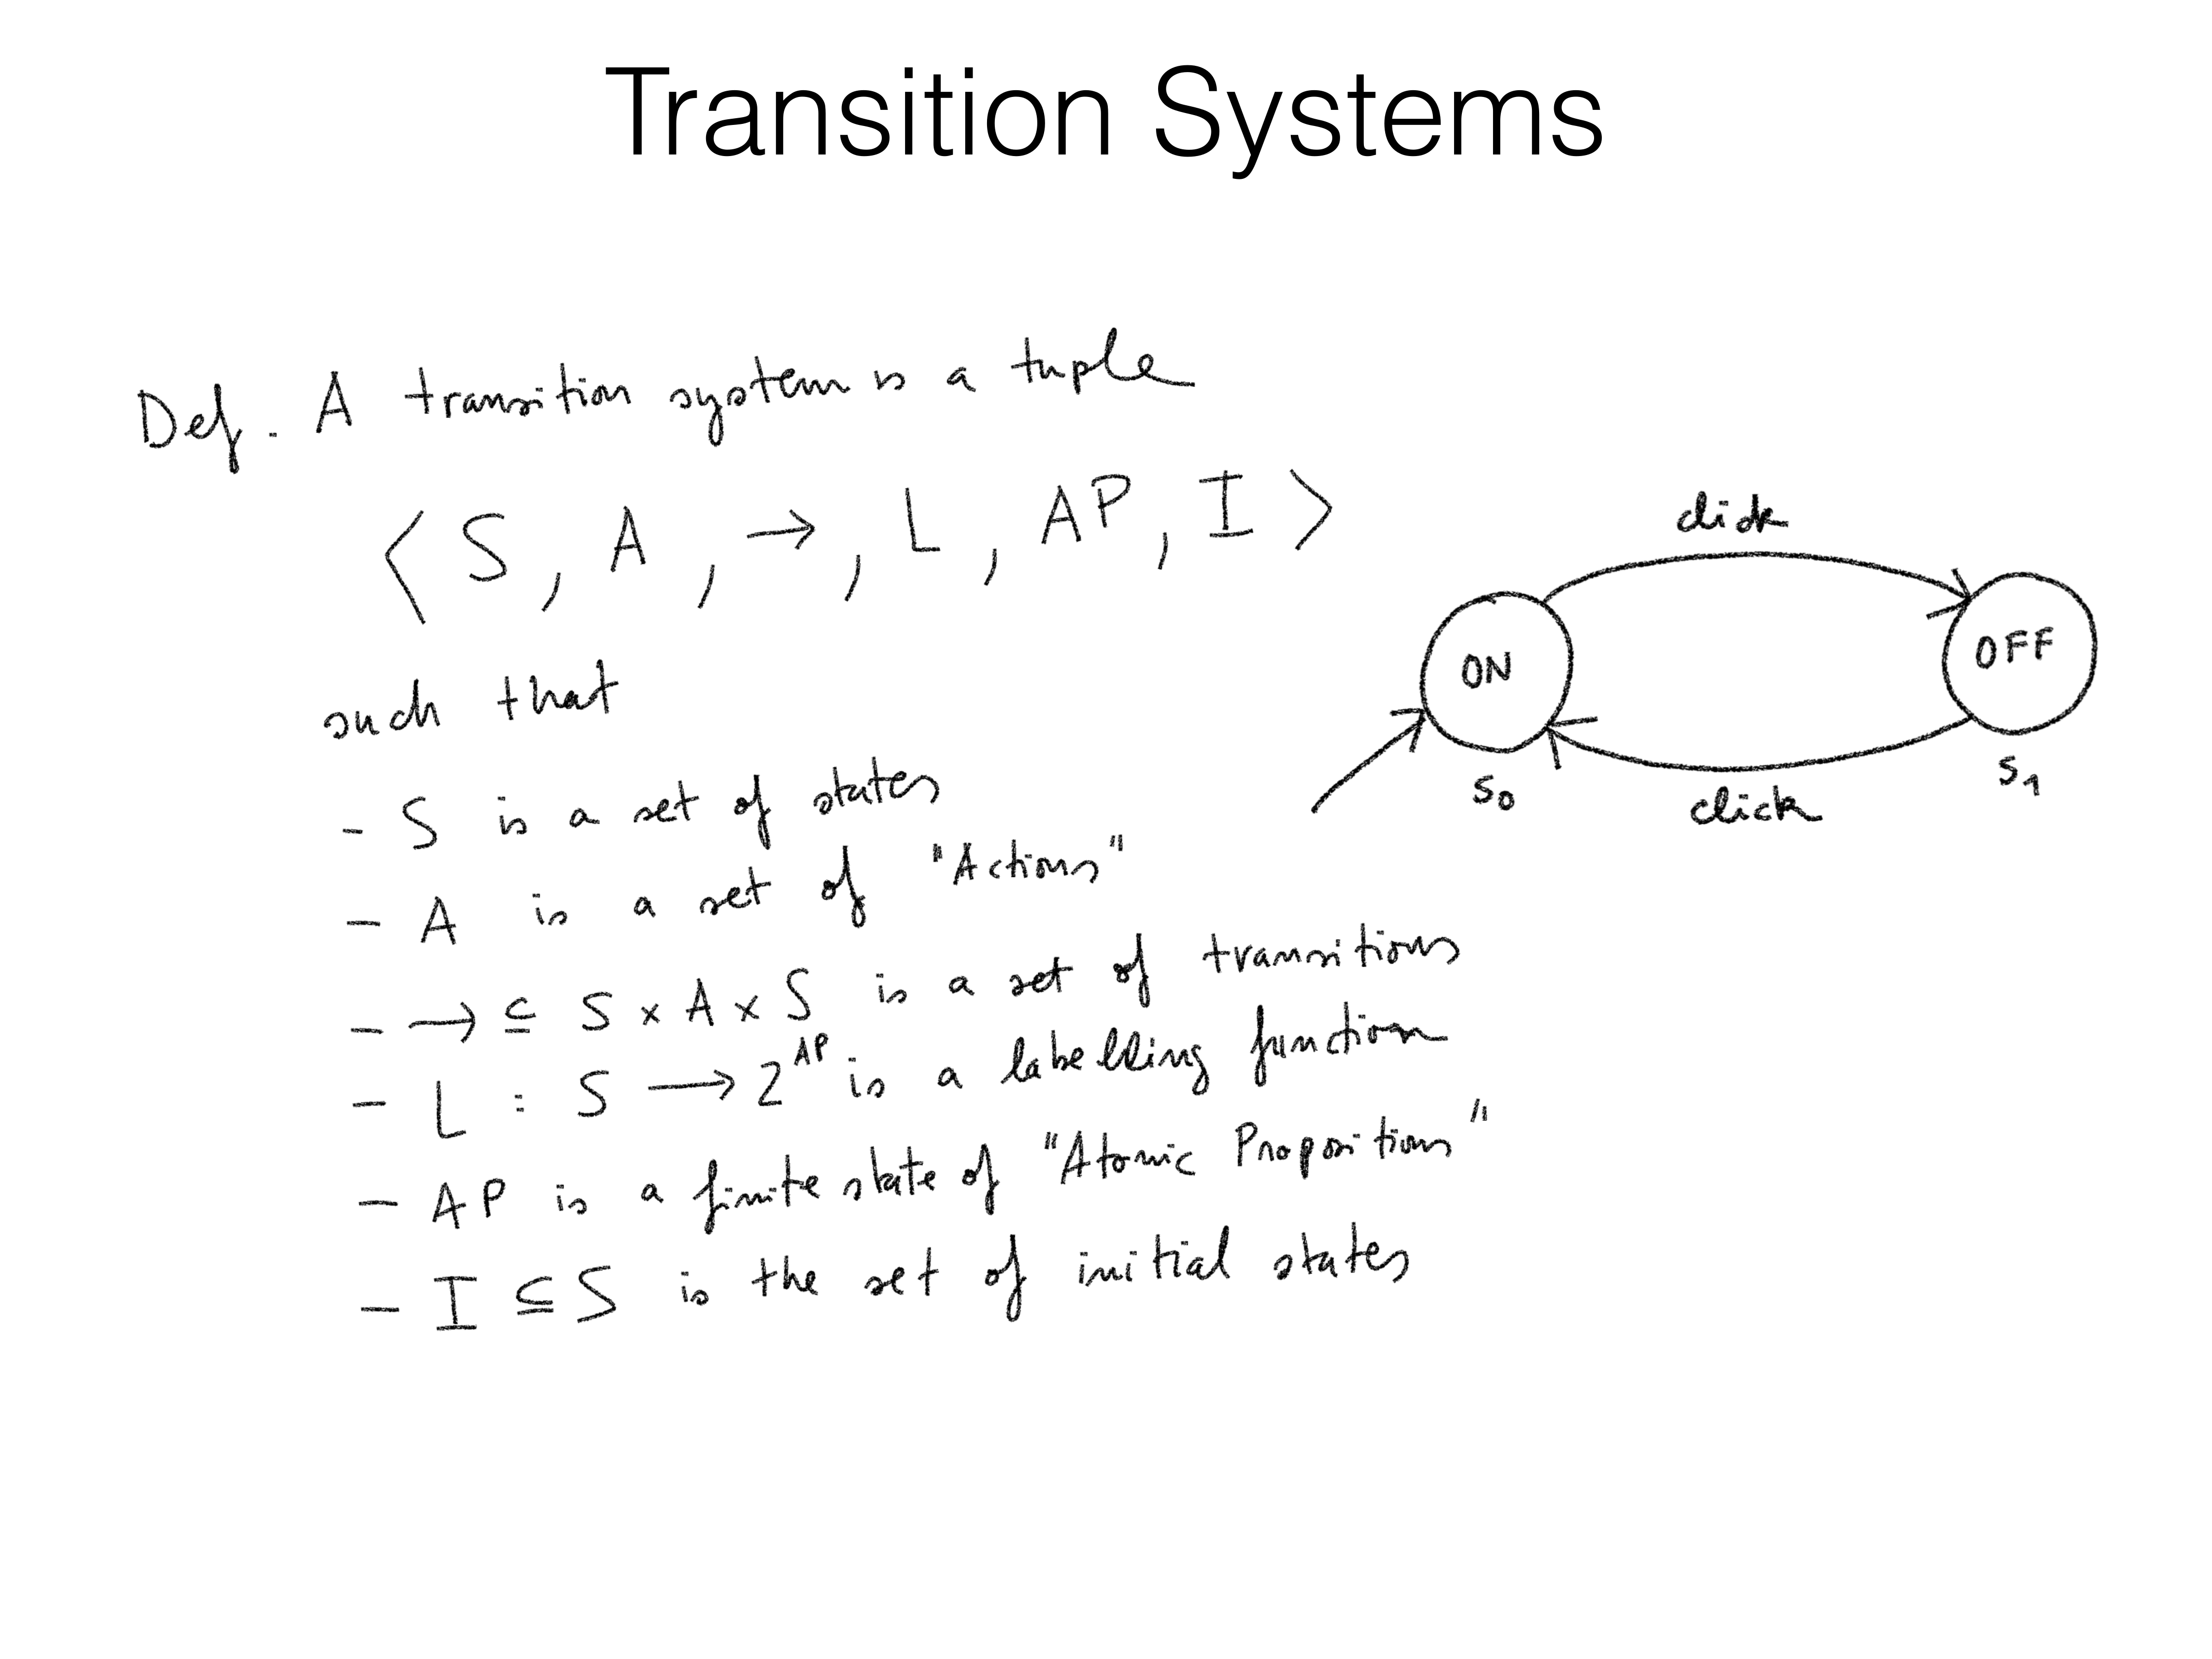 Transition Systems
Def. A transition system is a tuple
⟨ S, A, →, L, AP, I ⟩
such that
- S is a set of states
- A is a set of "Actions"
- → ⊆ S × A × S is a set of transitions
- L : S → 2^AP is a labelling function
- AP is a finite state of "Atomic Propositions"
- I ⊆ S is the set of initial states
click
ON
OFF
s₀
s₁
click